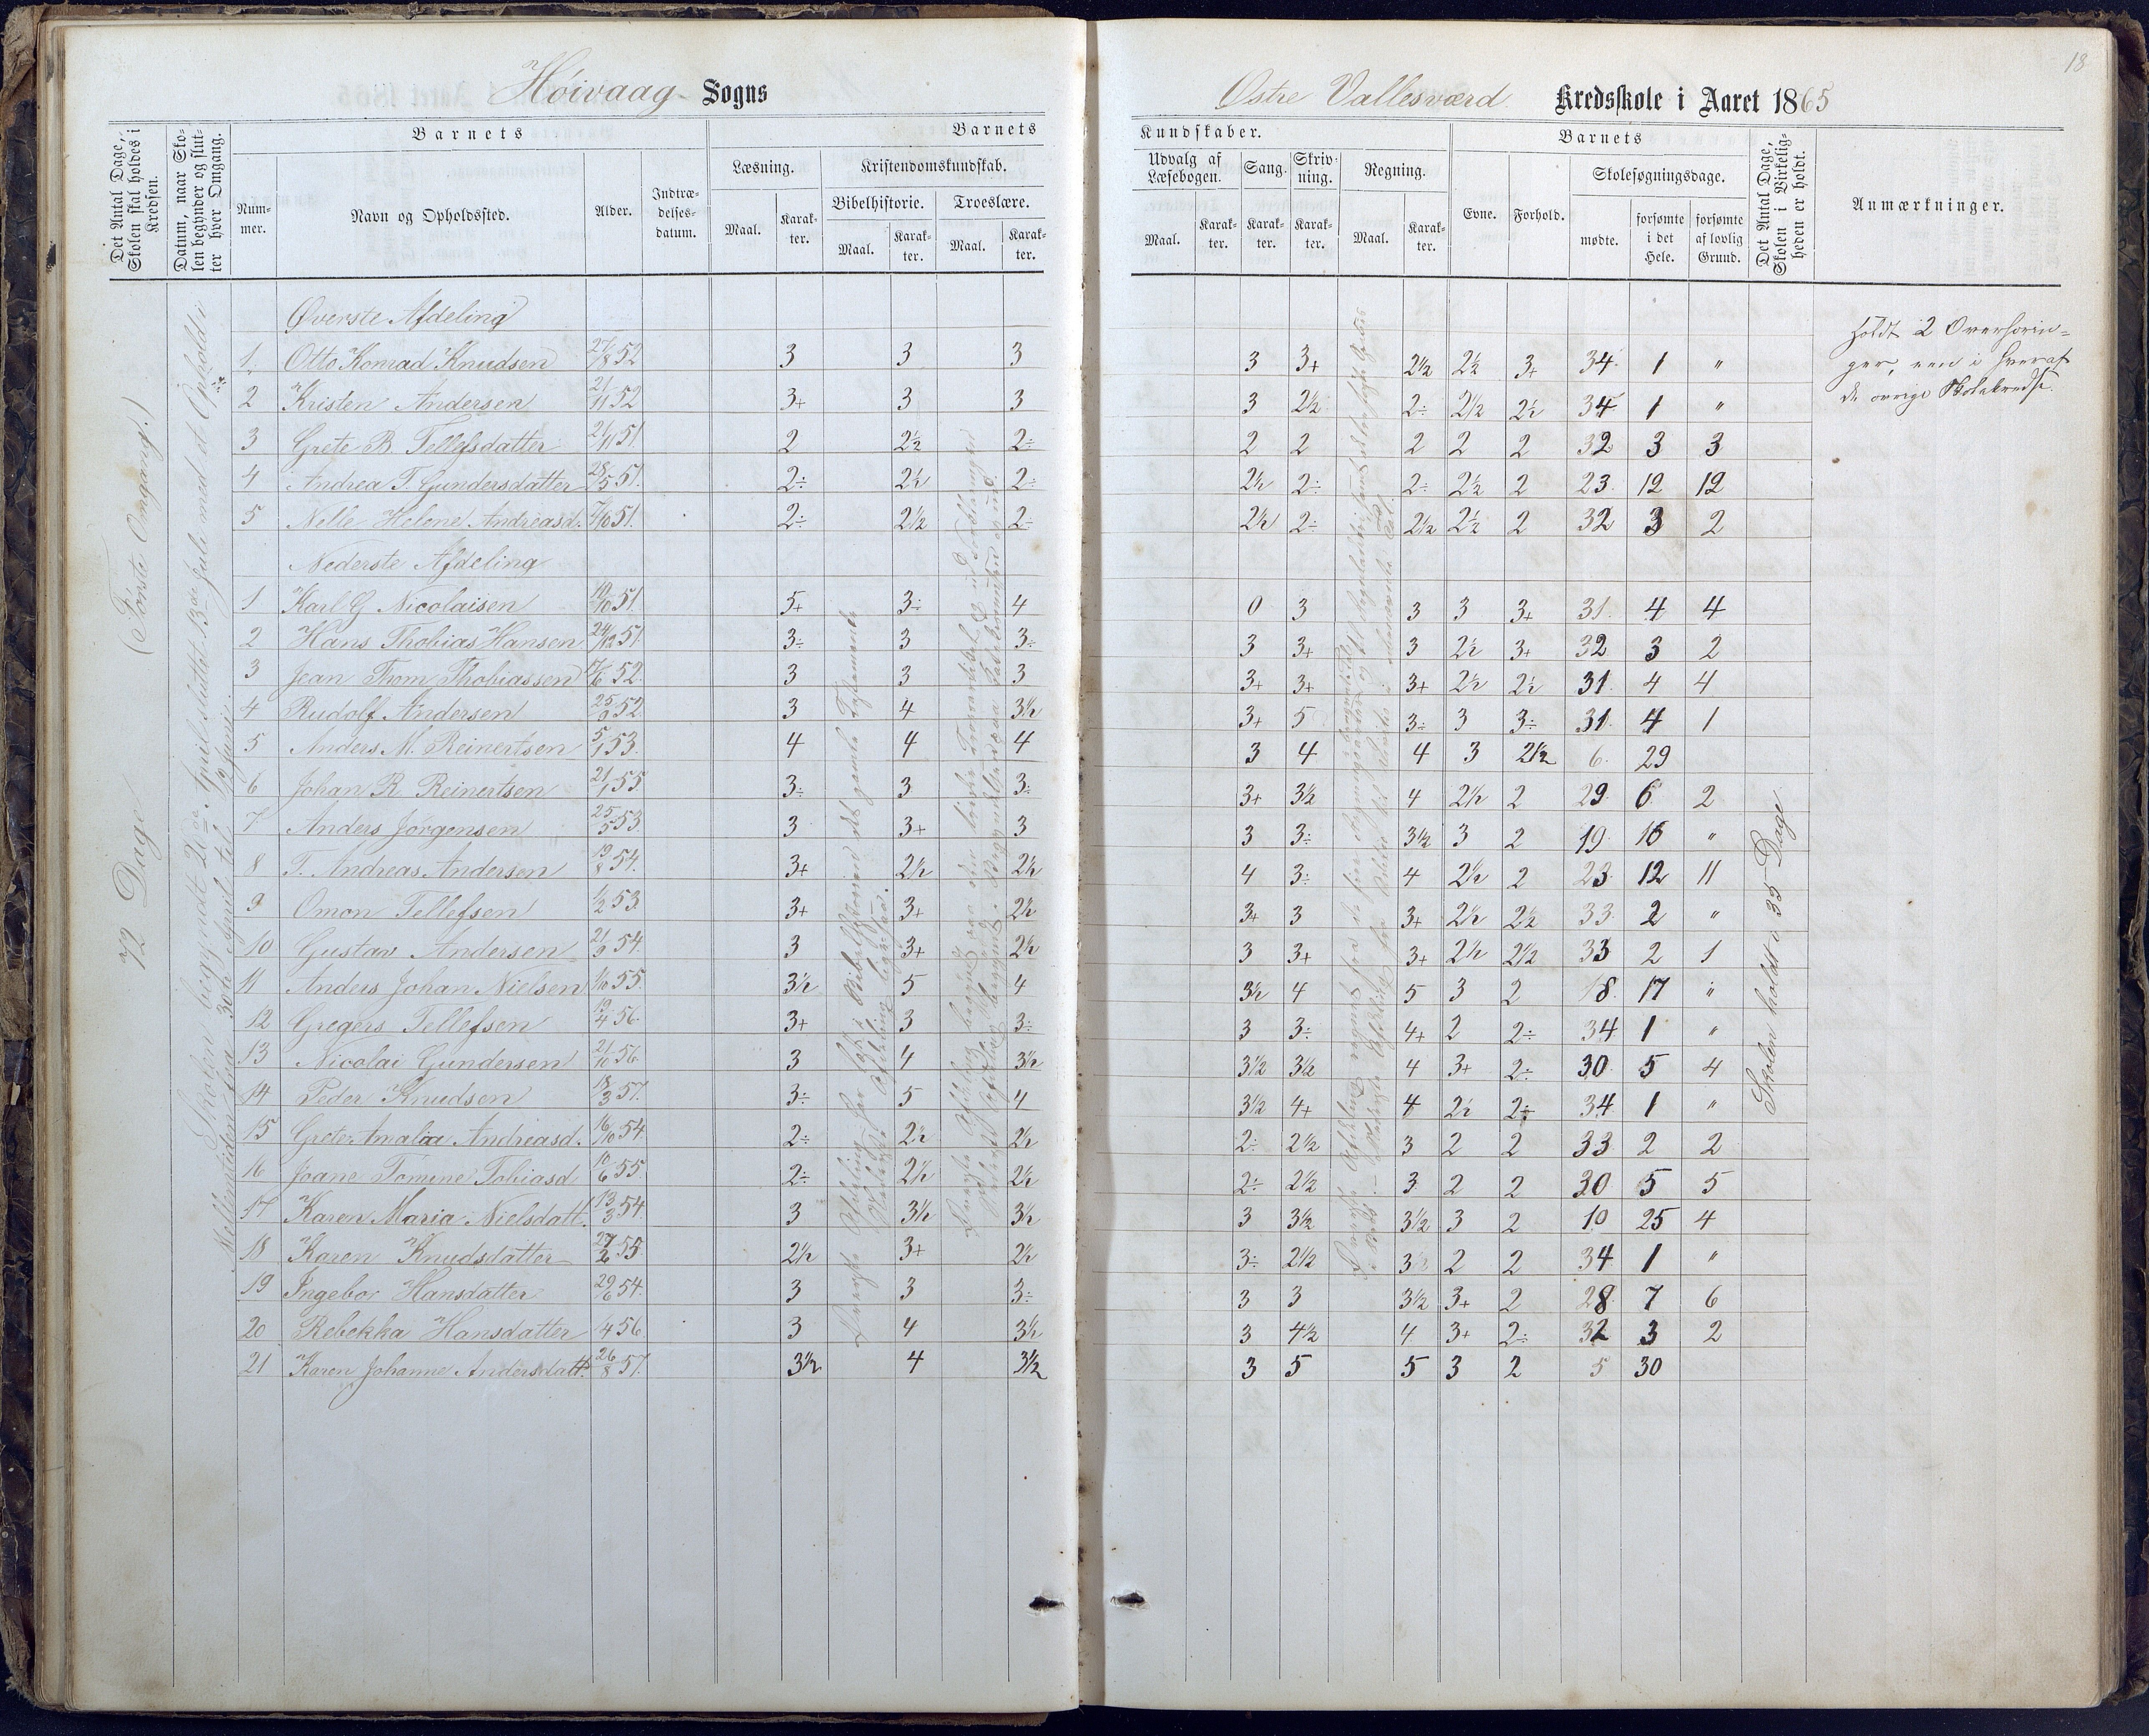 18
Høivaag Sogns
Østre Vallesværd Kredsskole i Aaret 1865
Det Antal Dage, Skolen skal holdes i Kredsen.
Datum, naar Skolen begynder og slutter hver Omgang.
Barnets
Nummer.
Navn og Opholdssted.
Alder.
Indtrædelsesdatum.
Barnets
Læsning.
Maal.
Karakter.
Kristendomskundskab.
Bibelhistorie.
Maal.
Karakter.
Troeslære.
Maal.
Karakter.
Kundskaber.
Udvalg af Læsebogen.
Maal.
Karakter.
Sang.
Karakter.
Skrivning.
Karakter.
Regning.
Maal.
Karakter.
Barnets
Evne.
Forhold.
Skolesøgningsdage.
mødte.
forsømte i det Hele.
forsømte af lovlig Grund.
Det Antal Dage, Skolen i Virkeligheden er holdt.
Anmærkninger.
72 Dage (Første Omgang.)
Skolen begyndt 2den April sluttet 13de Juli med et Ophold i
Mellemtiden fra 30te April til
Øverste Afdeling
1 Otto Konrad Knudsen 27/8 52 3 3 3 3 3+ 2½ 2½ 3+ 34 1 "
2 Kristen Andersen 21/11 52 3+ 3 3 3 2½ 2÷ 2½ 2½ 34 1 "
3 Grete B. Tellefsdatter 21/11 51 2 2½ 2÷ 2 2 2 2 2 32 3 3
4 Andrea T. Gundersdatter 28/5 51. 2÷ 2½ 2÷ 2½ 2÷ 2÷ 2½ 2 23 12 12
5 Nelle Helene Andreasd. 7/10 51. 2÷ 2½ 2÷ 2½ 2÷ 2½ 2½ 2 32 3 2
Nederste Afdeling
1 Karl G Nicolaisen 10/10 51 5+ 3÷ 4 0 3 3 3 3+ 31 4 4
2 Hans Thobias Hansen 24/12 51 3÷ 3 3÷ 3 3+ 3 2½ 3+ 32 3 2
3 Jean Thom Thobiassen 17/6 52 3 3 3 3+ 3+ 3+ 2½ 2½ 31 4 4
4 Rudolf Andersen 25/9 52 3 4 3½ 3+ 5 3÷ 3 3÷ 31 4 1
5 Anders M. Reinertsen 5/1 53 4 4 4 3 4 4 3 2½ 6 29
6 Johan R Reinertsen 21/1 55 3÷ 3 3÷ 3+ 3½ 4 2½ 2 29 6 2
7 Anders Jørgensen 25/5 53 3 3+ 3 3 3÷ 3½ 3 2 19 16 "
8 T. Andreas Andersen 19/8 54. 3+ 2½ 2½ 4 3÷ 4 2½ 2 23 12 11
9 Omon Tellefsen 1/2 53 3+ 3+ 2½ 3+ 3 3+ 2½ 2½ 33 2 "
10 Gustav Andersen 21/9 54 3 3+ 2½ 3 3+ 3+ 2½ 2½ 33 2 1
11 Anders Johan Nielsen 1/10 55. 3½ 5 4 3½ 4 5 3 2 18 17 "
12 Gregers Tellefsen 19/4 56 3+ 3 3÷ 3 3÷ 4+ 2 2÷ 34 1 "
13 Nicolai Gundersen 21/10 56 3 4 3½ 3½ 3½ 4 3+ 2÷ 30 5 4
14 Peder Knudsen 18/3 57. 3÷ 5 4 3½ 4+ 4 2½ 2÷ 34 1 "
15 Grete Amalia Andreasd. 16/10 54 2÷ 2½ 2½ 2÷ 2½ 3 2 2 33 2 2
16 Joane Tomine Tobiasd 10/6 55 2÷ 2½ 2½ 2÷ 2½ 3 2 2 30 5 5
17 Karen Maria Nielsdatt. 13/3 54 3 3½ 3½ 3 3½ 3½ 3 2 10 25 4
18 Karen Knudsdatter 27/2 55 2½ 3+ 2½ 3÷ 2½ 3 2 2 34 1 "
19 Ingebor Hansdatter 29/6 54 3 3 3÷ 3 3 3½ 3+ 2 28 7 6
20 Rebekka Hansdatter 1/4 56 3 4 3½ 3 4½ 4 3+ 2÷ 32 3 2
21 Karen Johanne Andersdatt. 26/8 57. 3½ 4 3½ 3 5 5 3 2 5 30
Skolen holdt i 35 Dage
Holdt 2 Overhørin-
ger, een i hver af
de øvrige Skolekredse.